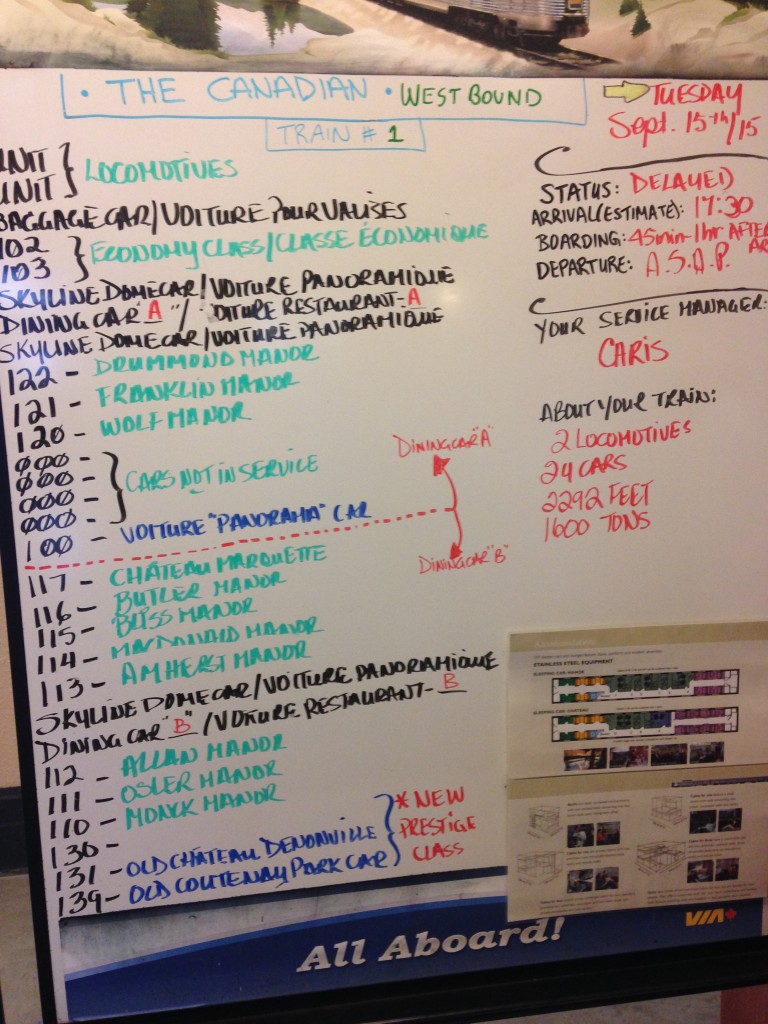 • THE CANADIAN • WEST BOUND
TRAIN # 1
TUESDAY
Sept. 15th/15
UNIT
UNIT
LOCOMOTIVES
BAGGAGE CAR/VOITURE POUR VALISES
102
103
ECONOMY CLASS/CLASSE ÉCONOMIQUE
SKYLINE DOMECAR/VOITURE PANORAMIQUE
DINING CAR "A"/ OITURE RESTAURANT-A
SKYLINE DOMECAR/VOITURE PANORAMIQUE
122 - DRUMMOND MANOR
121 - FRANKLIN MANOR
120 - WOLF MANOR
000 -
000 -
000 -
000 -
CARS NOT IN SERVICE
100 - VOITURE "PANORAMA" CAR
DINING CAR "A"
DINING CAR "B"
117 - CHÂTEAU MARQUETTE
116 - BUTLER MANOR
115 - BLISS MANOR
114 - MACDONALD MANOR
113 - AMHERST MANOR
SKYLINE DOMECAR/VOITURE PANORAMIQUE
DINING CAR "B"/VOITURE RESTAURANT-B
112 - ALLAN MANOR
111 - OSLER MANOR
110 - MONCK MANOR
130 -
131 - OLD CHÂTEAU DENONVILLE
139 - OLD COUTENAY PARK CAR
* NEW
PRESTIGE
CLASS
STATUS: DELAYED
ARRIVAL(ESTIMATE): 17:30
BOARDING: 45min-1hr AFTER
DEPARTURE: A.S.A.P.
YOUR SERVICE MANAGER:
CARIS
ABOUT YOUR TRAIN:
2 LOCOMOTIVES
24 CARS
2292 FEET
1600 TONS
STAINLESS STEEL EQUIPMENT
All Aboard!
VIA